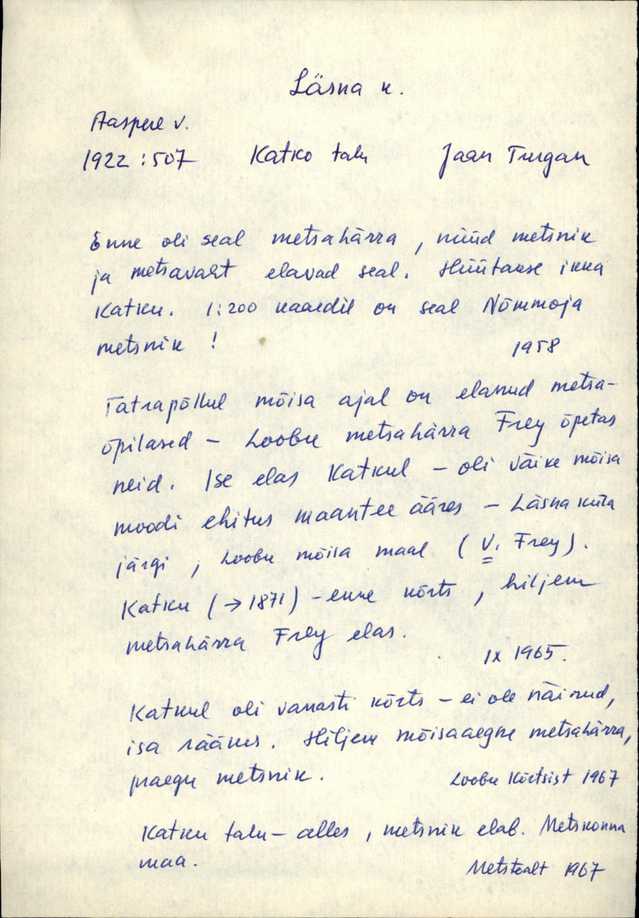 Läsna k.
Aaspere v.
1922 : 507 Katko talu Jaan Turgan
Enne oli seal metsahärra, nüüd metsnik
ja metsavaht elavad seal. Hüütakse ikka
Katku. 1:200 kaardil on seal Nõmmoja
metsnik !
1958
Tatrapõllul mõisa ajal on elanud metsa-
õpilased – Loobu metsahärra Frey õpetas
neid. Ise elas Katkul – oli väike mõisa
moodi ehitus maantee ääres – Läsna küla
järgi, Loobu mõisa maal (V. Frey).
Katku (→ 1871) – enne kõrts, hiljem
metsahärra Frey elas.
IX 1965.
Katkul oli vanasti kõrts – ei ole näinud,
isa rääkis. Hiljem mõisaaegne metsahärra,
praegu metsnik.
Loobu Kõrtsist 1967
Katku talu – alles, metsnik elab. Metskonna
maa.
Metstealt 1967